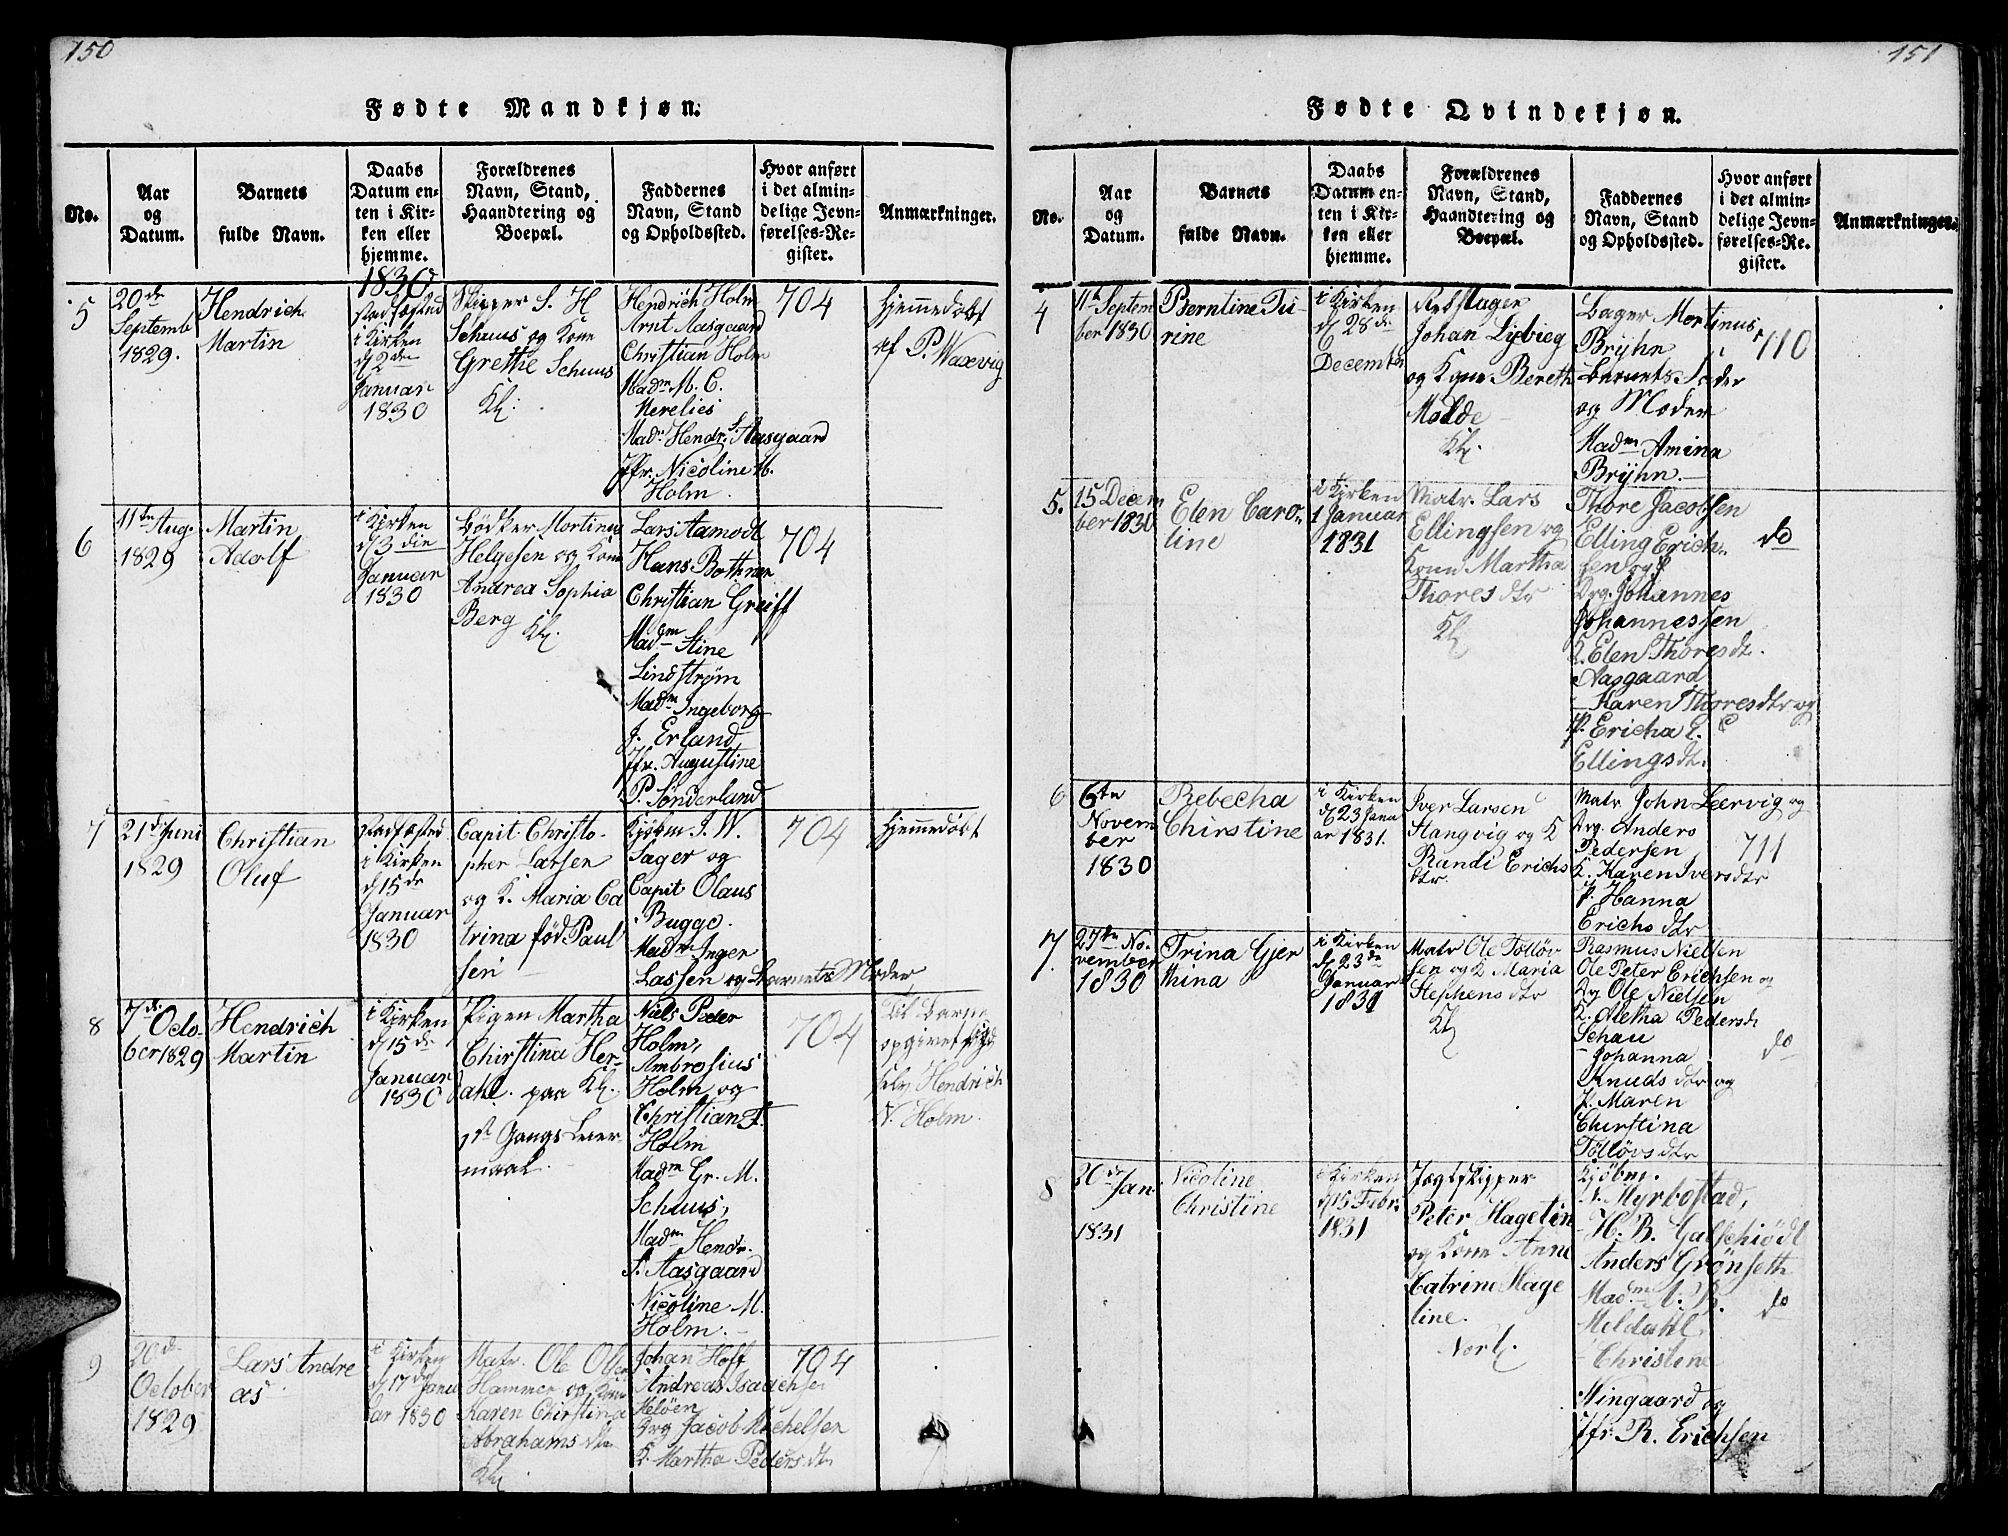 150
Fødte Mandkjøn.
No.
Aar
og
Datum.
Barnets
fulde Navn.
Daabs
Datum en-
ten i Kir-
ken eller
hjemme.
Forældrenes
Navn, Stand,
Haandtering og
Boepæl.
Faddernes
Navn, Stand
og Opholdssted.
Hvor anført
i det almin-
delige Jevn-
førelses-Re-
gister.
Anmærkninger.
1830
5
20de
Septemb
1829.
Hendrich
Martin
stadfæsted
i Kirken
d 2den
Januar
1830
Skipper S. H
Schuus og Kone
Grethe Schuus
Kl.
Hendrich Holm
Arnt Aasgaard
Christian Holm
Madm M. C.
Merelies
Madm Hendr. S. Aasgaard
Jfr. Nicoline M.
Holm.
704
hjemmedøbt
af P. Waxevig
6
11te Aug.
1829
Martin
Adolf
i Kirken
d 3die
Januar
1830
Bödker Mortinus
Helgesen og Kone
Andrea Sophia
Berg Kl.
Lars Aamodt
Hans Bothner
Christian Greiff
Madm Stine
Lindstrøm
Madm Ingeborg
J. Erland
Jfr. Augustine
P. Sønderland
704
7
21de Juni
1829
Christian
Oluf
stadfæsted
i Kirken
d 15de
Januar
1830
Capit Christo-
pher Lassen
og K. Maria Ca
trina fød Paul
sen
Kjøbm J. W.
Sager og
Capit Olaus
Bugge.
Madm Inger
Lassen og Barnets Moder
704
hjemmedøbt
8
7de Octo-
ber 1829
Hendrich
Martin
i Kirken
d 15de
Januar
1830
Pigen Martha
Chirstina Her-
dahl. paa Kl.
1ste Gangs Leier-
maal.
Niels Peder
Holm,
Ambrosius
Holm og
Christian F.
Holm
Madm Gr. M.
Schuus,
Madm Hendr.
S. Aasgaard
Nicoline M.
Holm.
704
Til Barne
opgivet
Hendrich
N. Holm.
9
20de
October
1829
Lars Andre
as
i Kirken
d 17de Janu
ar 1830
Matr. Ole Olsen
Hammer og Kone
Karen Chirstina
Abrahams dtr
Kl.
Johan Hoff
Andreas Isaachsen
Meløen
Drg Jacob Michelsen
K. Martha Peders dtr
704
151
Fødte Qvindekjøn.
No.
Aar
og
Datum.
Barnets
fulde Navn.
Daabs
Datum en-
ten i Kir-
ken eller
hjemme.
Forældrenes
Navn, Stand,
Haandtering og
Boepæl.
Faddernes
Navn, Stand
og Opholdssted.
Hvor anført
i det almin-
delige Jevn-
førelses-Re-
gister.
Anmærkninger.
4
11te Septem
ber 1830
Berntine Tu-
rine
i Kirken
d 28de
December
Rebslager
Johan Lysvieg
og Kone Bereth
Molde
Kl.
Bager Mortinus
Bryhn
Barnets Fader
og Moder
Madm Amina
Bryhn.
710
5.
15 Decem
ber 1830
Elen Caro-
line
i Kirken
1 Januar
1831
Matr. Lars
Ellingsen og
Kone Martha
Thores dtr
Kl
Thore Jacobsen
Elling Erich-
sen og
Drg. Johannes
Johannessen
K. Elen Thores dt.
Aasgaard
– Karen Thores dtr og
P. Ericha E.
Ellings dt.
do
6
6te
Novem
ber
1830
Rebecha
Chirstine
i Kirken
d 23 Janu
ar 1831.
Iver Larsen
Stangvig og K
Randi Erichs
dtr.
Matr. John Leervig og
Drg. Anders
Pedersen
K. Karen Ivers dtr
P. Hanna
Erichs dtr
711
7
27te No-
vember
1830
Trina Gjer
thina
i Kirken
d 23de
Januar
1831
Matr Ole Tolløv
sen og K Maria
Stephens dtr
Kl
Rasmus Nielsen
Ole Peter Erichsen og
Dg Ole Nielsen
K. Aletha Peders dt
Schau
– Johanna
Knuds dtr og
P. Maren
Chirstina
Tolløvs dtr
do
8
20de Jan.
1831
Nicoline
Christine
i Kirken
d 15 Febr.
1831
Jægtskipper
Peter Hagelin
og Kone Anne
Catrine Hage
line.
Norl.
Kjöbm.
N. Myrbostad,
– H. B. Galschiödt
Anders Grönseth
Madm A. B.
Meldahl,
– Christine
Wingaard og
Jfr. R. Erichsen
do